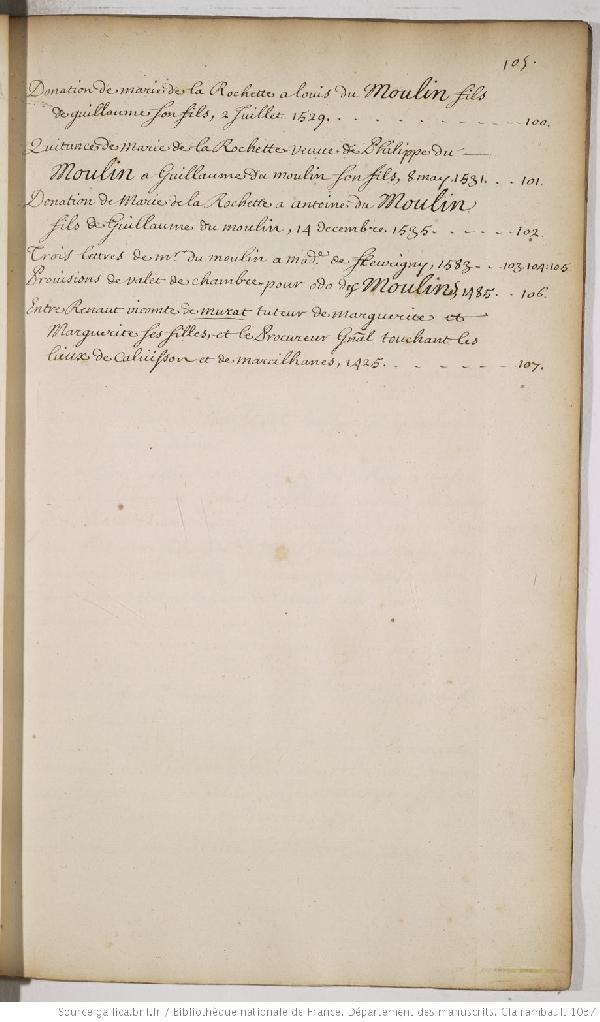 105.
Donation de marie de la Rochette a louis du Moulin fils
de guillaume son fils, 2 Juillet 1529. . . . . . . . . . 100.
Quitance de Marie de la Rochette veuve de Philippe du
Moulin a Guillaume du moulin son fils, 8 may 1531. . . 101.
Donation de Marie de la Rochette a antoine du Moulin
fils de Guillaume du moulin, 14 decembre. 1535. . . . . . 102.
Trois lettres de mr. du moulin a made. de fleurigny, 1583. . . 103.104.105
Provisions de valet de chambre pour odo des Moulins, 1485. . 106.
Entre Renaut vicomte de murat tuteur de marguerite et
Marguerite ses filles, et le Procureur Gnãl touchant les
lieux de Calvisson et de marcilhanes, 1425. . . . . . . . 107.
Source gallica.bnf.fr / Bibliothèque nationale de France. Département des manuscrits. Clairambault 1087